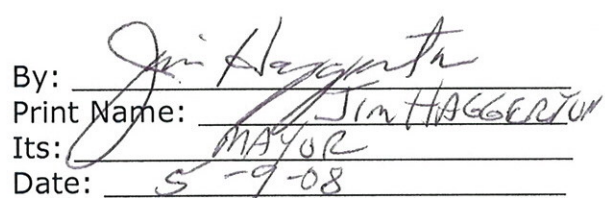 By: Jim Haggerton
Print Name: JIM HAGGERTON
Its: MAYOR
Date: 5-9-08